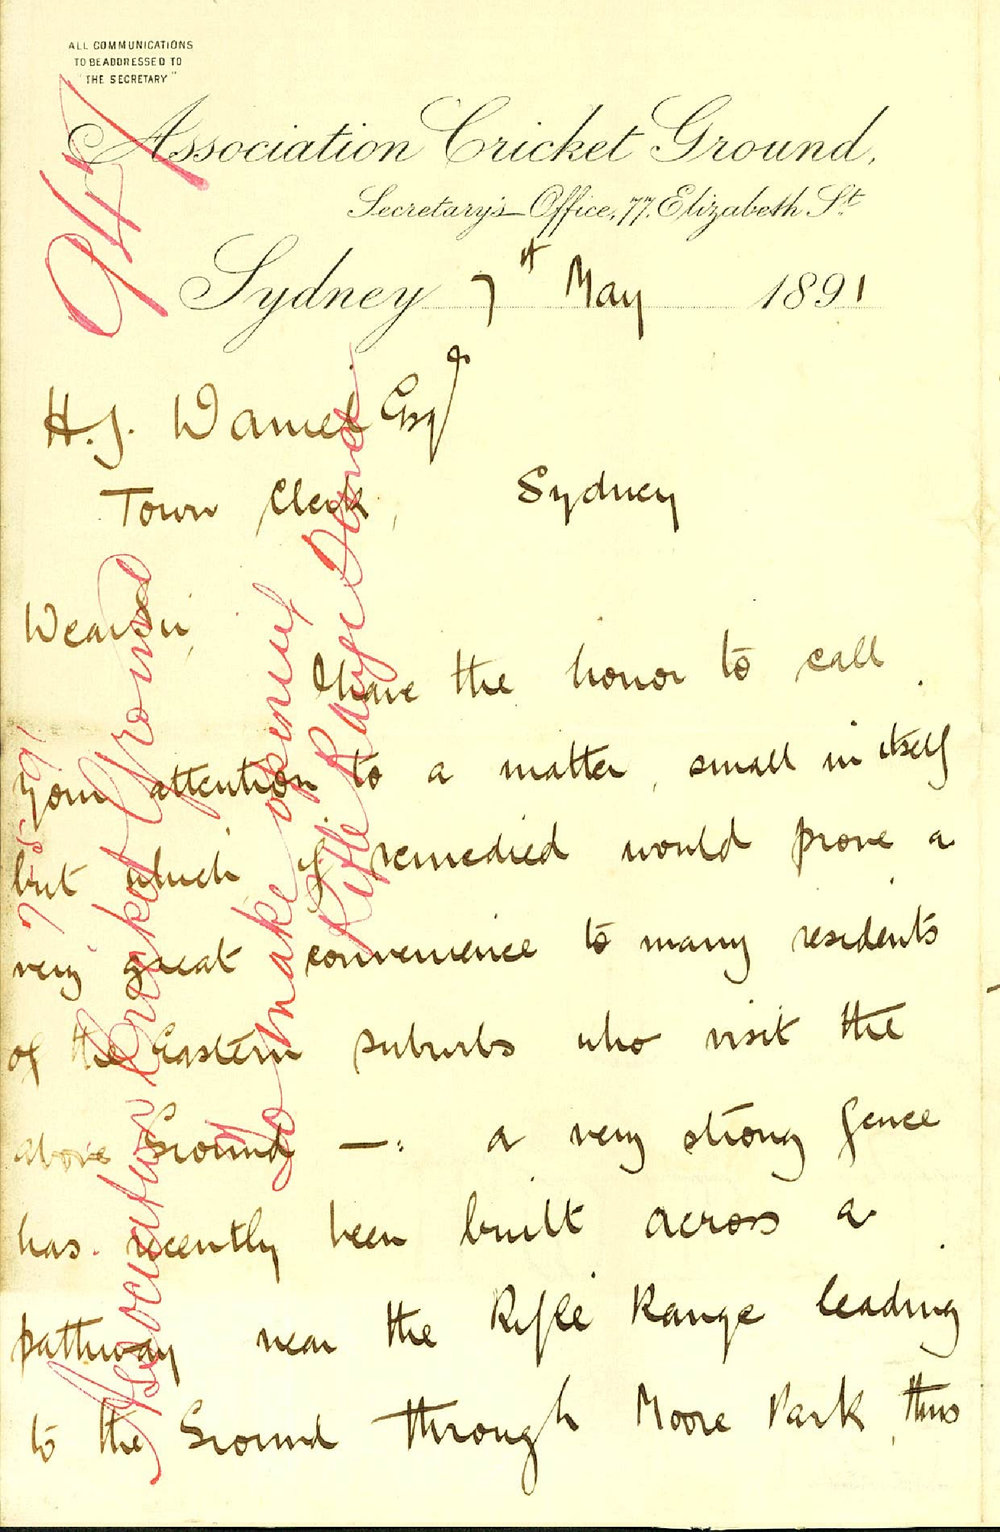 ALL COMMUNICATIONS
TO BE ADDRESSED TO
"THE SECRETARY"
Association Cricket Ground,
Secretary's Office, 77, Elizabeth St.
Sydney 7th May 1891
H. J. Daniel Esqr
Town Clerk, Sydney
Dear Sir,
I have the honor to call
your attention to a matter, small in itself
but which if remedied would prove a
very great convenience to many residents
of the Eastern suburbs who visit the
above Ground —: a very strong fence
has recently been built across a
pathway near the Rifle Range leading
to the Ground through Moore Park, thus
947
7 5 91
Association Cricket Ground
To make opening
Rifle Range